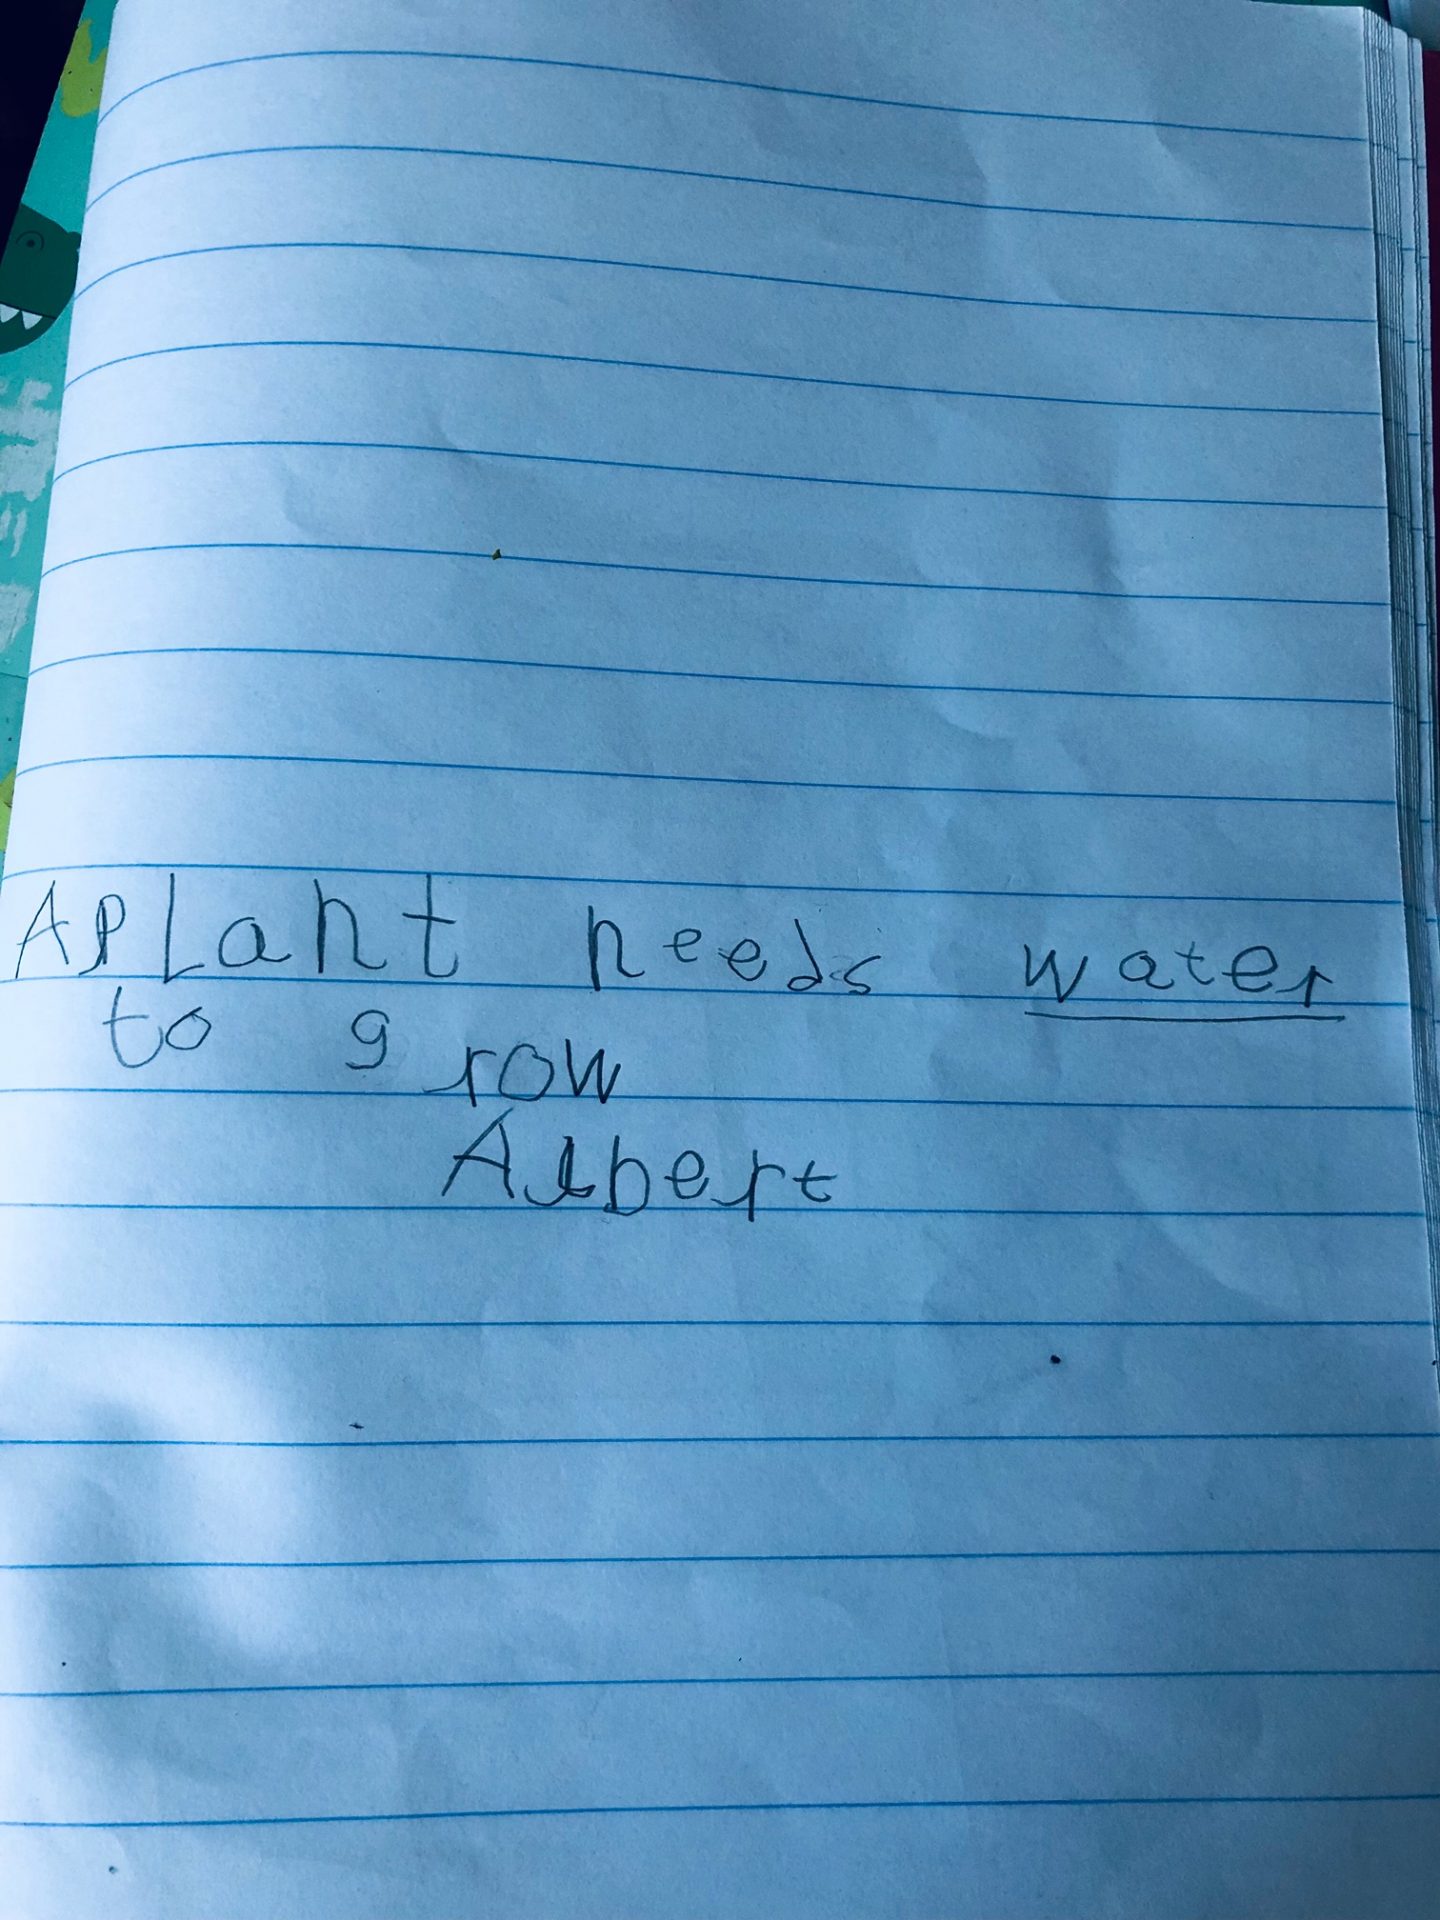 A PLant needs water
to grow
Albert